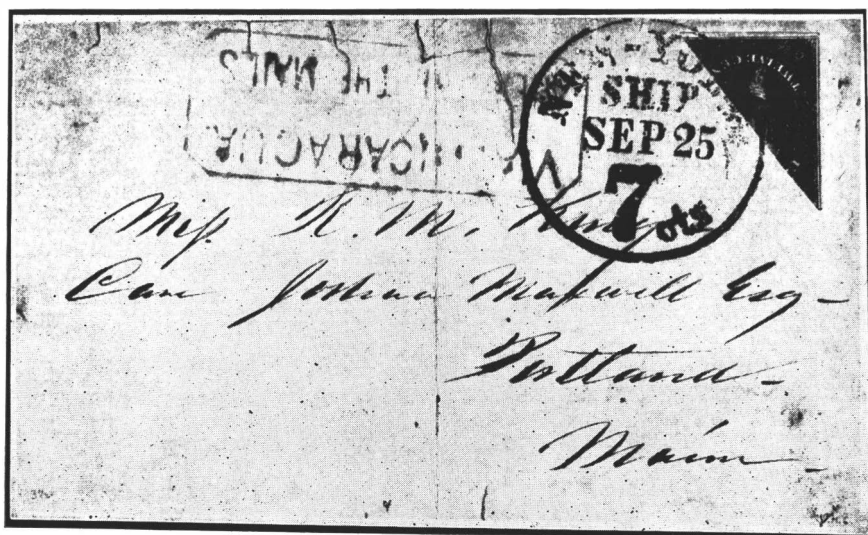 VIA NICARAGUA
THE MAILS
NEW-YORK
SHIP
SEP 25
7 cts
Miss K. M.
Care Joshua Maxwell Esq-
Portland-
Maine-